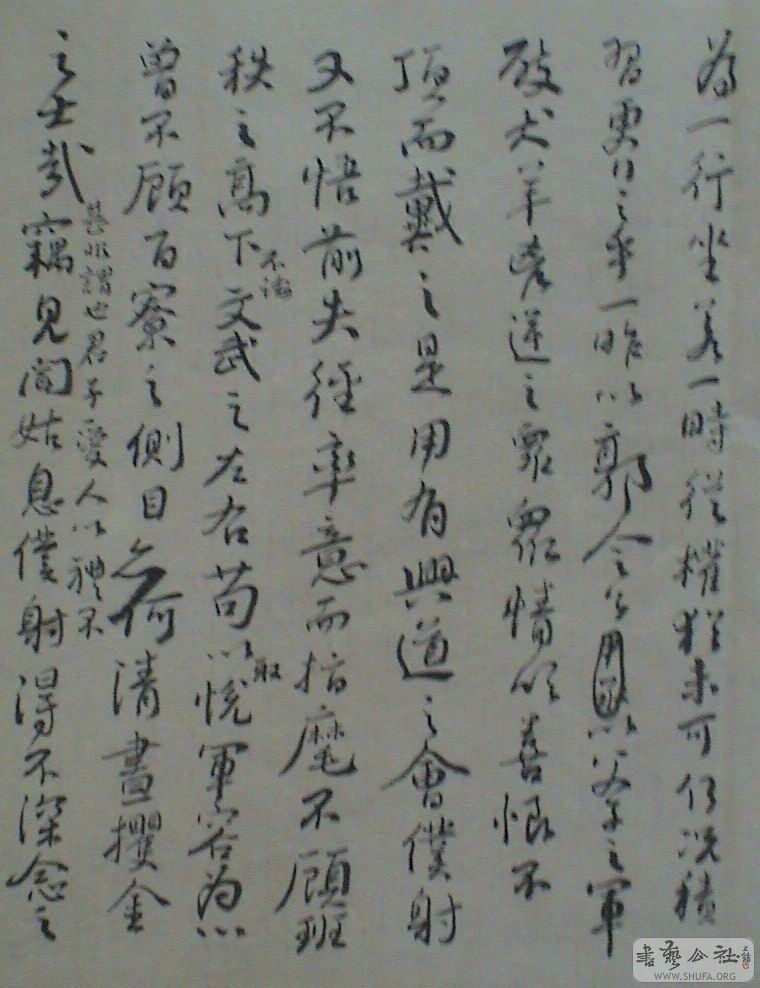 為一行坐若一時從權猶未可何況積
習更行之乎一昨以郭令公以父子之軍
破犬羊兇逆之眾眾情欣喜恨不
頂而戴之是用有興道之會僕射
又不悟前失徑率意而指麾不顧班
秩之高下不論文武之左右苟以取悅軍容為心
曾不顧百寮之側目亦何清晝攫金
之士哉甚非謂也君子愛人以禮不竊見聞姑息僕射得不深念之
書藝公社
WWW.SHUFA.ORG